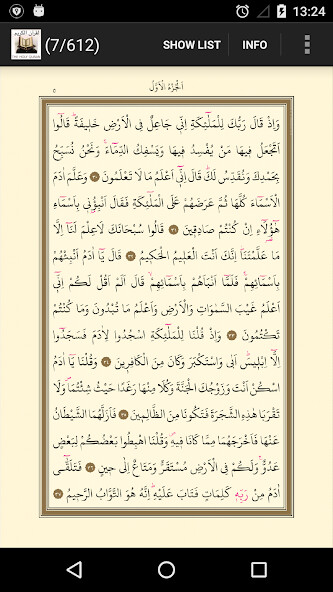 13:24
القرآن الكريم
(7/612) SHOW LIST INFO
اَلْجُزْءُ الْاَوَّلُ ٥
وَاِذْ قَالَ رَبُّكَ لِلْمَلٰٓئِكَةِ اِنّ۪ي جَاعِلٌ فِي الْاَرْضِ خَل۪يفَةًۜ قَالُٓوا
اَتَجْعَلُ ف۪يهَا مَنْ يُفْسِدُ ف۪يهَا وَيَسْفِكُ الدِّمَٓاءَۚ وَنَحْنُ نُسَبِّحُ
بِحَمْدِكَ وَنُقَدِّسُ لَكَۜ قَالَ اِنّ۪ٓي اَعْلَمُ مَا لَا تَعْلَمُونَ ٣٠ وَعَلَّمَ اٰدَمَ
الْاَسْمَٓاءَ كُلَّهَا ثُمَّ عَرَضَهُمْ عَلَى الْمَلٰٓئِكَةِ فَقَالَ اَنْبِؤُ۫ن۪ي بِاَسْمَٓاءِ
هٰٓؤُ۬لَٓاءِ اِنْ كُنْتُمْ صَادِق۪ينَ ٣١ قَالُوا سُبْحَانَكَ لَا عِلْمَ لَنَٓا اِلَّا
مَا عَلَّمْتَنَاۜ اِنَّكَ اَنْتَ الْعَل۪يمُ الْحَك۪يمُ ٣٢ قَالَ يَٓا اٰدَمُ اَنْبِئْهُمْ
بِاَسْمَٓائِهِمْۚ فَلَمَّٓا اَنْبَاَهُمْ بِاَسْمَٓائِهِمْۙ قَالَ اَلَمْ اَقُلْ لَكُمْ اِنّ۪ٓي
اَعْلَمُ غَيْبَ السَّمٰوَاتِ وَالْاَرْضِ وَاَعْلَمُ مَا تُبْدُونَ وَمَا كُنْتُمْ
تَكْتُمُونَ ٣٣ وَاِذْ قُلْنَا لِلْمَلٰٓئِكَةِ اسْجُدُوا لِاٰدَمَ فَسَجَدُٓوا
اِلَّٓا اِبْل۪يسَۜ اَبٰى وَاسْتَكْبَرَ وَكَانَ مِنَ الْكَافِر۪ينَ ٣٤ وَقُلْنَا يَٓا اٰدَمُ
اسْكُنْ اَنْتَ وَزَوْجُكَ الْجَنَّةَ وَكُلَا مِنْهَا رَغَدًا حَيْثُ شِئْتُمَاۖ وَلَا
تَقْرَبَا هٰذِهِ الشَّجَرَةَ فَتَكُونَا مِنَ الظَّالِم۪ينَ ٣٥ فَاَزَلَّهُمَا الشَّيْطَانُ
عَنْهَا فَاَخْرَجَهُمَا مِمَّا كَانَا ف۪يهِۖ وَقُلْنَا اهْبِطُوا بَعْضُكُمْ لِبَعْضٍ
عَدُوٌّۚ وَلَكُمْ فِي الْاَرْضِ مُسْتَقَرٌّ وَمَتَاعٌ اِلٰى ح۪ينٍ ٣٦ فَتَلَقّٰٓى
اٰدَمُ مِنْ رَبِّه۪ كَلِمَاتٍ فَتَابَ عَلَيْهِۜ اِنَّهُ هُوَ التَّوَّابُ الرَّح۪يمُ ٣٧